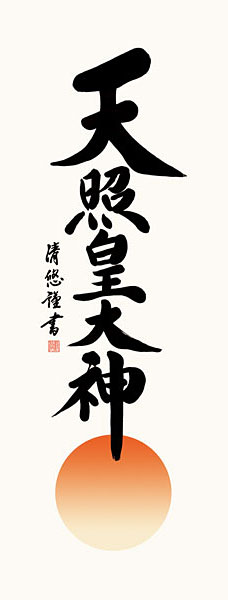 天照皇大神
清悠謹書